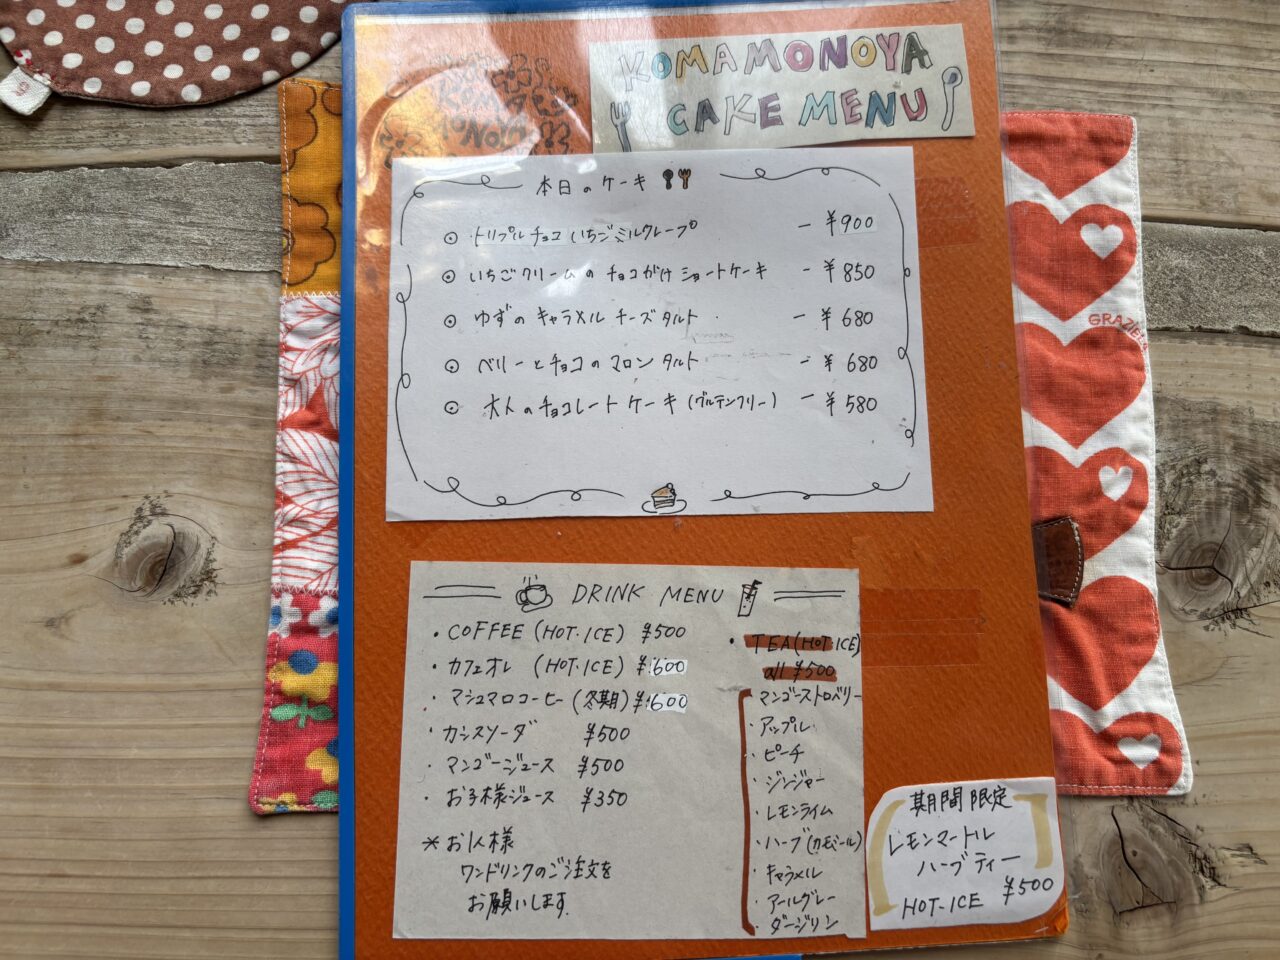 KOMA
MONOYA
KOMAMONOYA
CAKE MENU
本日のケーキ
トリプルチョコいちごミルクレープ - ¥900
いちごクリームのチョコがけショートケーキ - ¥850
ゆずのキャラメルチーズタルト - ¥680
ベリーとチョコのマロンタルト - ¥680
大人のチョコレートケーキ(グルテンフリー) - ¥580
DRINK MENU
・COFFEE (HOT・ICE) ¥500
・カフェオレ (HOT・ICE) ¥600
・マシュマロコーヒー(冬期) ¥600
・カシスソーダ ¥500
・マンゴージュース ¥500
・お子様ジュース ¥350
*お1人様
ワンドリンクのご注文を
お願いします.
・TEA(HOT・ICE)
all ¥500
・マンゴーストロベリー
・アップル
・ピーチ
・ジンジャー
・レモンライム
・ハーブ(カモミール)
・キャラメル
・アールグレー
・ダージリン
期間限定
レモンマートル
ハーブティー
HOT・ICE ¥500